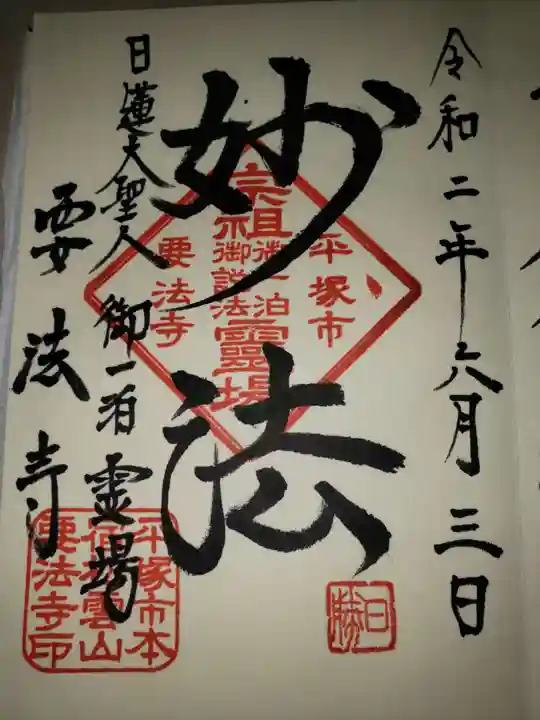 令和二年六月三日
妙法
日蓮大聖人御一泊霊場
要法寺
平塚市
宗祖
御一泊
御説法
靈場
要法寺
平塚市本
宿松雲山
要法寺印
日